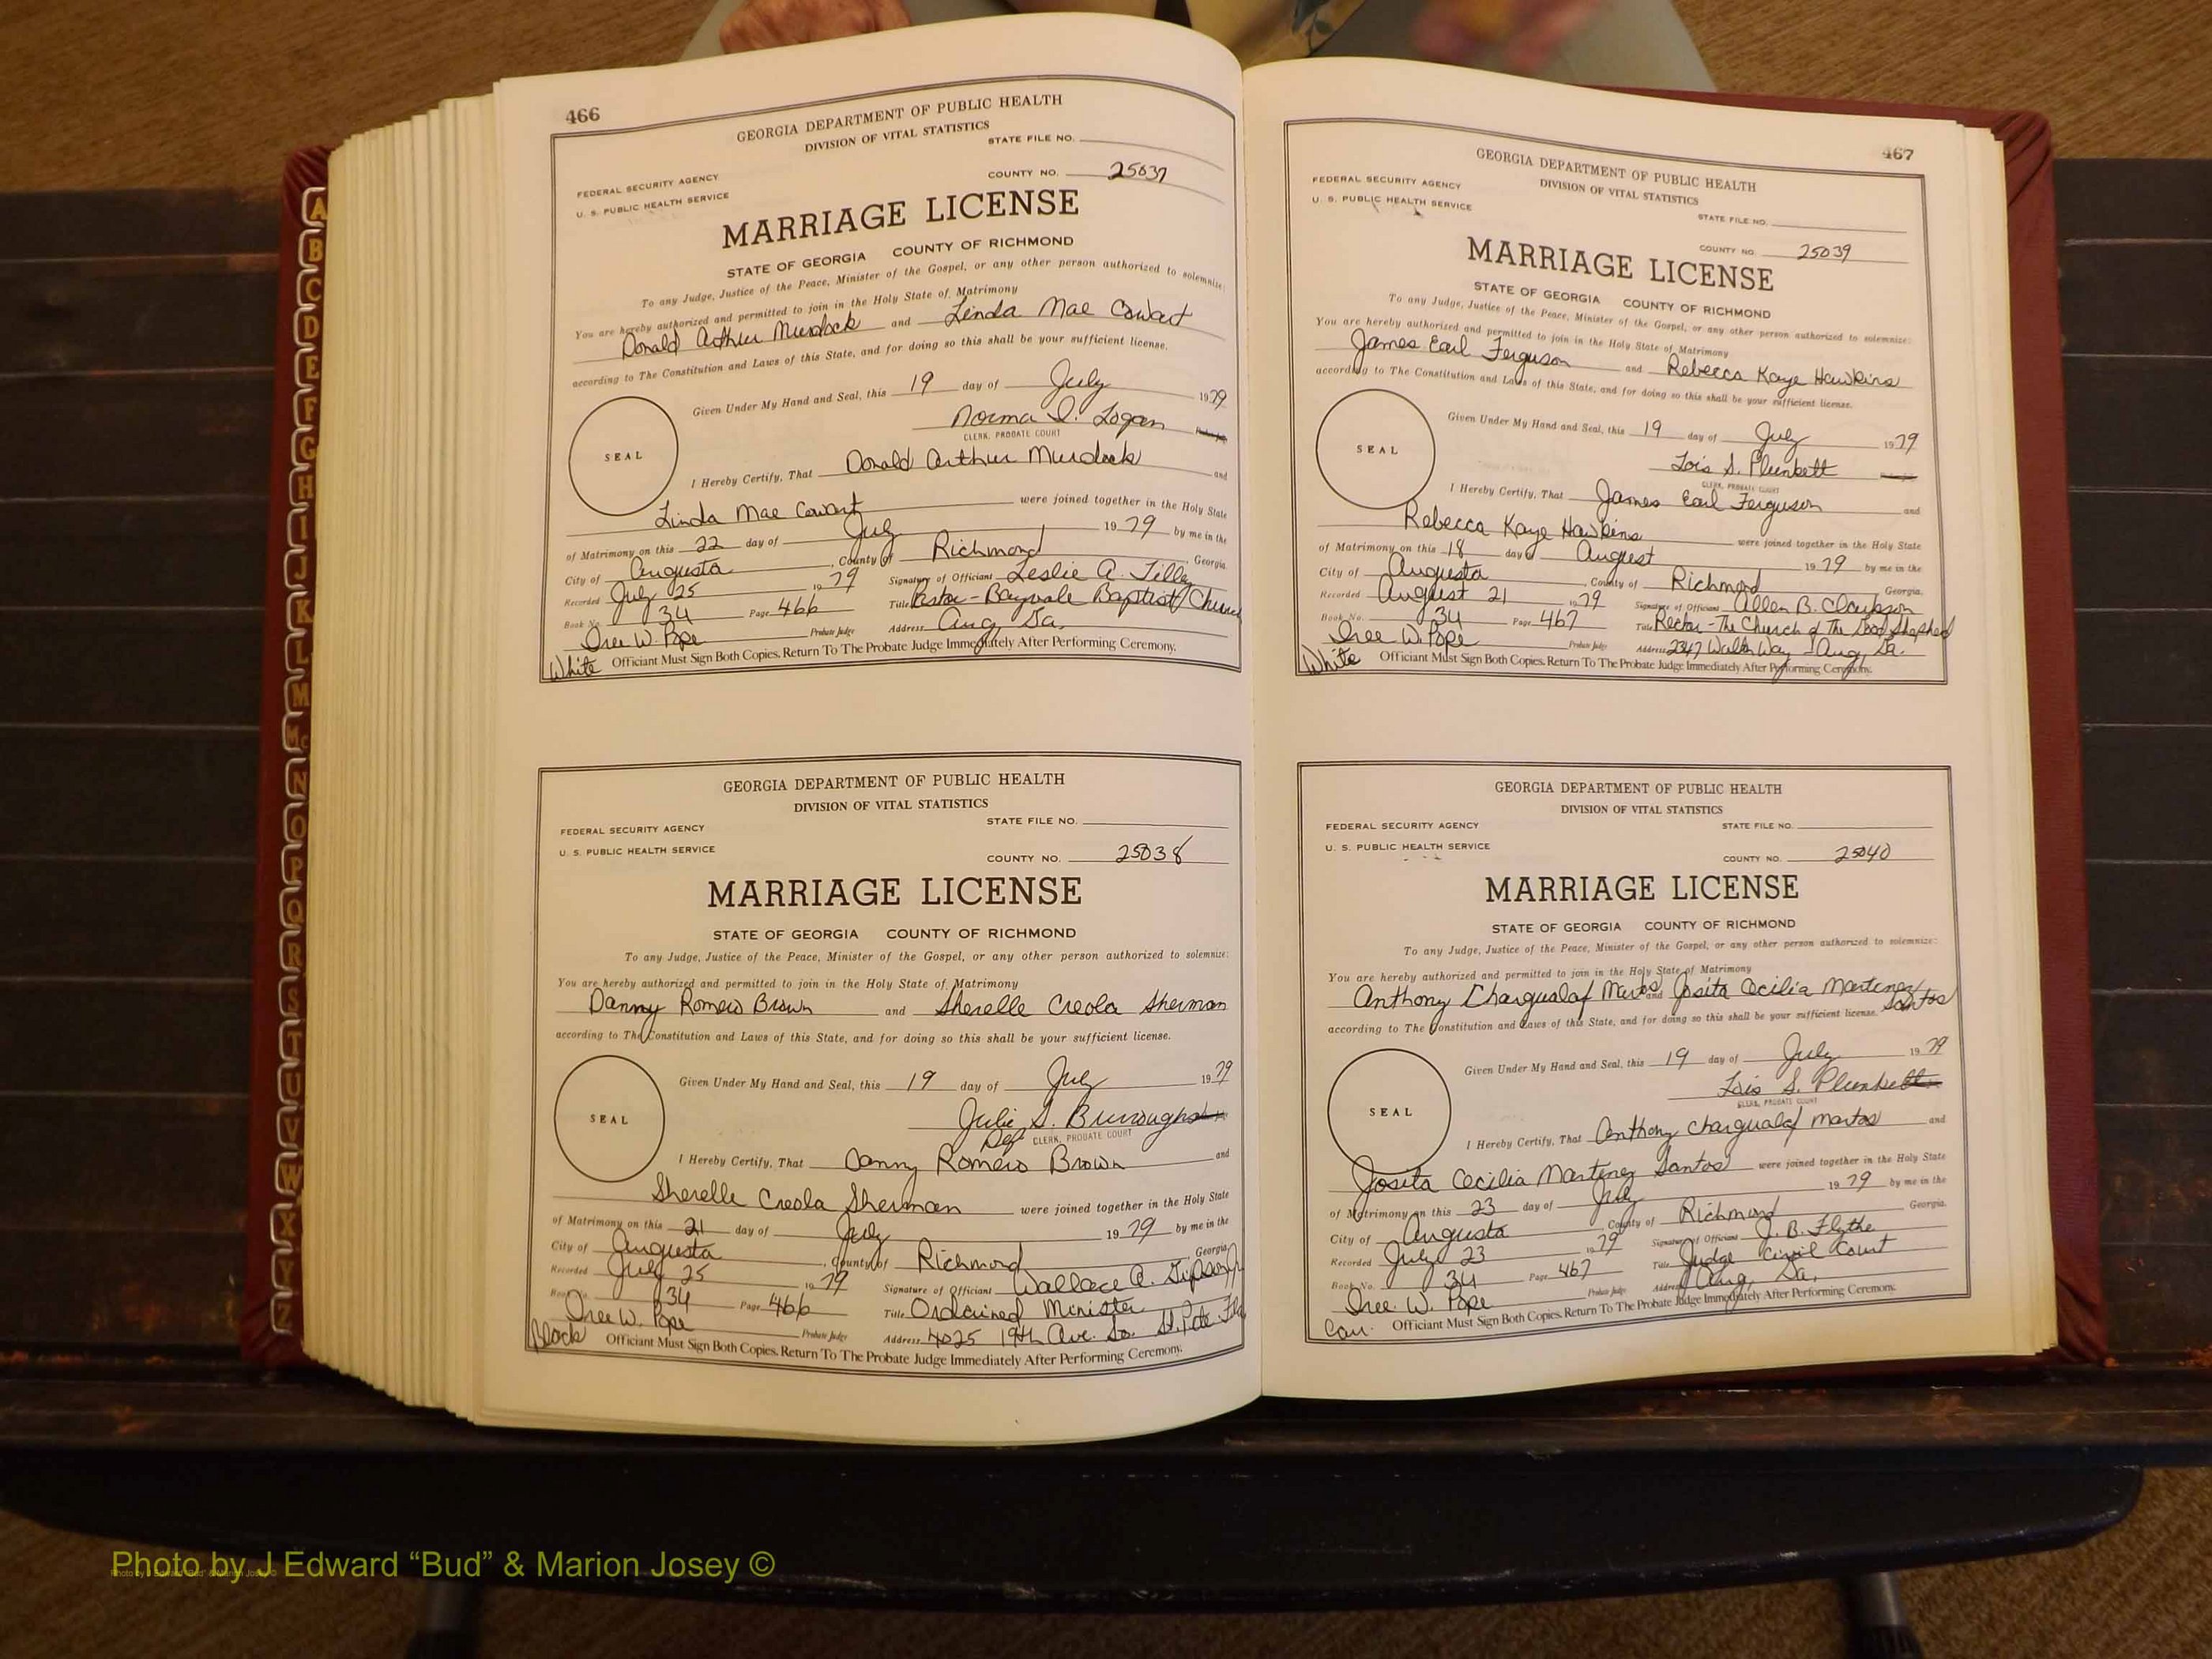 A
B
C
D
E
F
G
H
I
J
K
L
M
Mc
N
O
P
Q
R
S
T
U
V
W
X
Y
Z
466
GEORGIA DEPARTMENT OF PUBLIC HEALTH
DIVISION OF VITAL STATISTICS
STATE FILE NO.
FEDERAL SECURITY AGENCY
COUNTY NO. 25037
U. S. PUBLIC HEALTH SERVICE
MARRIAGE LICENSE
STATE OF GEORGIA COUNTY OF RICHMOND
To any Judge, Justice of the Peace, Minister of the Gospel, or any other person authorized to solemnize:
You are hereby authorized and permitted to join in the Holy State of Matrimony
Donald Arthur Murdock and Linda Mae Cowart
according to The Constitution and Laws of this State, and for doing so this shall be your sufficient license.
Given Under My Hand and Seal, this 19 day of July 1979
Norma D. Logan
CLERK, PROBATE COURT
SEAL
I Hereby Certify, That Donald Arthur Murdock and
Linda Mae Cowart were joined together in the Holy State
of Matrimony on this 22 day of July 1979 by me in the
City of Augusta, County of Richmond, Georgia.
Recorded July 25 1979 Signature of Officiant Leslie A. Tilley
Book No. 34 Page 466 Title Pastor - Bayvale Baptist Church
Iree W. Pope Probate Judge Address Aug, Ga.
White Officiant Must Sign Both Copies. Return To The Probate Judge Immediately After Performing Ceremony.
GEORGIA DEPARTMENT OF PUBLIC HEALTH
DIVISION OF VITAL STATISTICS
STATE FILE NO.
FEDERAL SECURITY AGENCY
U. S. PUBLIC HEALTH SERVICE
COUNTY NO. 25038
MARRIAGE LICENSE
STATE OF GEORGIA COUNTY OF RICHMOND
To any Judge, Justice of the Peace, Minister of the Gospel, or any other person authorized to solemnize:
You are hereby authorized and permitted to join in the Holy State of Matrimony
Danny Romero Brown and Sherelle Creola Sherman
according to The Constitution and Laws of this State, and for doing so this shall be your sufficient license.
Given Under My Hand and Seal, this 19 day of July 1979
Julie S. Burroughs
Dep CLERK, PROBATE COURT
SEAL
I Hereby Certify, That Danny Romero Brown and
Sherelle Creola Sherman were joined together in the Holy State
of Matrimony on this 21 day of July 1979 by me in the
City of Augusta, County of Richmond, Georgia.
Recorded July 25 1979 Signature of Officiant Wallace A.
Book No. 34 Page 466 Title Ordained Minister
Iree W. Pope Probate Judge Address 4025 19th Ave. So. St. Pete Fla
Black Officiant Must Sign Both Copies. Return To The Probate Judge Immediately After Performing Ceremony.
467
GEORGIA DEPARTMENT OF PUBLIC HEALTH
DIVISION OF VITAL STATISTICS
FEDERAL SECURITY AGENCY
U. S. PUBLIC HEALTH SERVICE
STATE FILE NO.
COUNTY NO. 25039
MARRIAGE LICENSE
STATE OF GEORGIA COUNTY OF RICHMOND
To any Judge, Justice of the Peace, Minister of the Gospel, or any other person authorized to solemnize:
You are hereby authorized and permitted to join in the Holy State of Matrimony
James Earl Ferguson and Rebecca Kaye Hawkins
according to The Constitution and Laws of this State, and for doing so this shall be your sufficient license.
Given Under My Hand and Seal, this 19 day of July 1979
Lois S. Plunkett
CLERK, PROBATE COURT
SEAL
I Hereby Certify, That James Earl Ferguson and
Rebecca Kaye Hawkins were joined together in the Holy State
of Matrimony on this 18 day of August 1979 by me in the
City of Augusta, County of Richmond, Georgia.
Recorded August 21 1979 Signature of Officiant Allen B. Clarkson
Book No. 34 Page 467 Title Rector - The Church of The Good Shepherd
Iree W. Pope Probate Judge Address 2347 Walton Way - Aug, Ga.
White Officiant Must Sign Both Copies. Return To The Probate Judge Immediately After Performing Ceremony.
GEORGIA DEPARTMENT OF PUBLIC HEALTH
DIVISION OF VITAL STATISTICS
FEDERAL SECURITY AGENCY
STATE FILE NO.
U. S. PUBLIC HEALTH SERVICE
COUNTY NO. 25040
MARRIAGE LICENSE
STATE OF GEORGIA COUNTY OF RICHMOND
To any Judge, Justice of the Peace, Minister of the Gospel, or any other person authorized to solemnize:
You are hereby authorized and permitted to join in the Holy State of Matrimony
Anthony Chargualaf and Josita Cecilia Martinez Santos
according to The Constitution and Laws of this State, and for doing so this shall be your sufficient license.
Given Under My Hand and Seal, this 19 day of July 1979
Lois S. Plunkett
CLERK, PROBATE COURT
SEAL
I Hereby Certify, That Anthony Chargualaf and
Josita Cecilia Martinez Santos were joined together in the Holy State
of Matrimony on this 23 day of July 1979 by me in the
City of Augusta, County of Richmond, Georgia.
Recorded July 23 1979 Signature of Officiant J. B. Flythe
Book No. 34 Page 467 Title Judge Civil Court
Iree. W. Pope Probate Judge Address Aug, Ga.
Cau. Officiant Must Sign Both Copies. Return To The Probate Judge Immediately After Performing Ceremony.
Photo by J Edward “Bud” & Marion Josey ©
Photo by J Edward "Bud" & Marion Josey ©